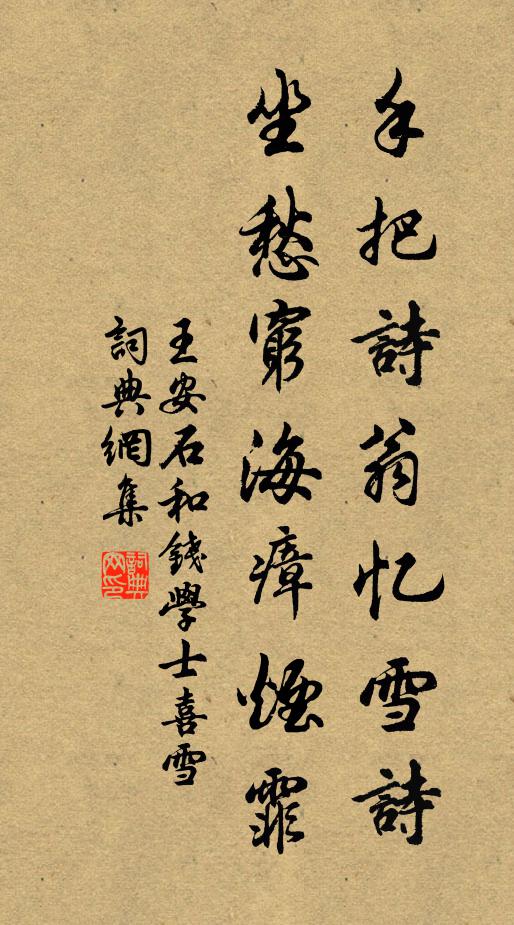 手把詩翁忆雪詩
坐愁窮海瘴煙霏
王安石和錢學士喜雪
詞典網集
詞典
网印